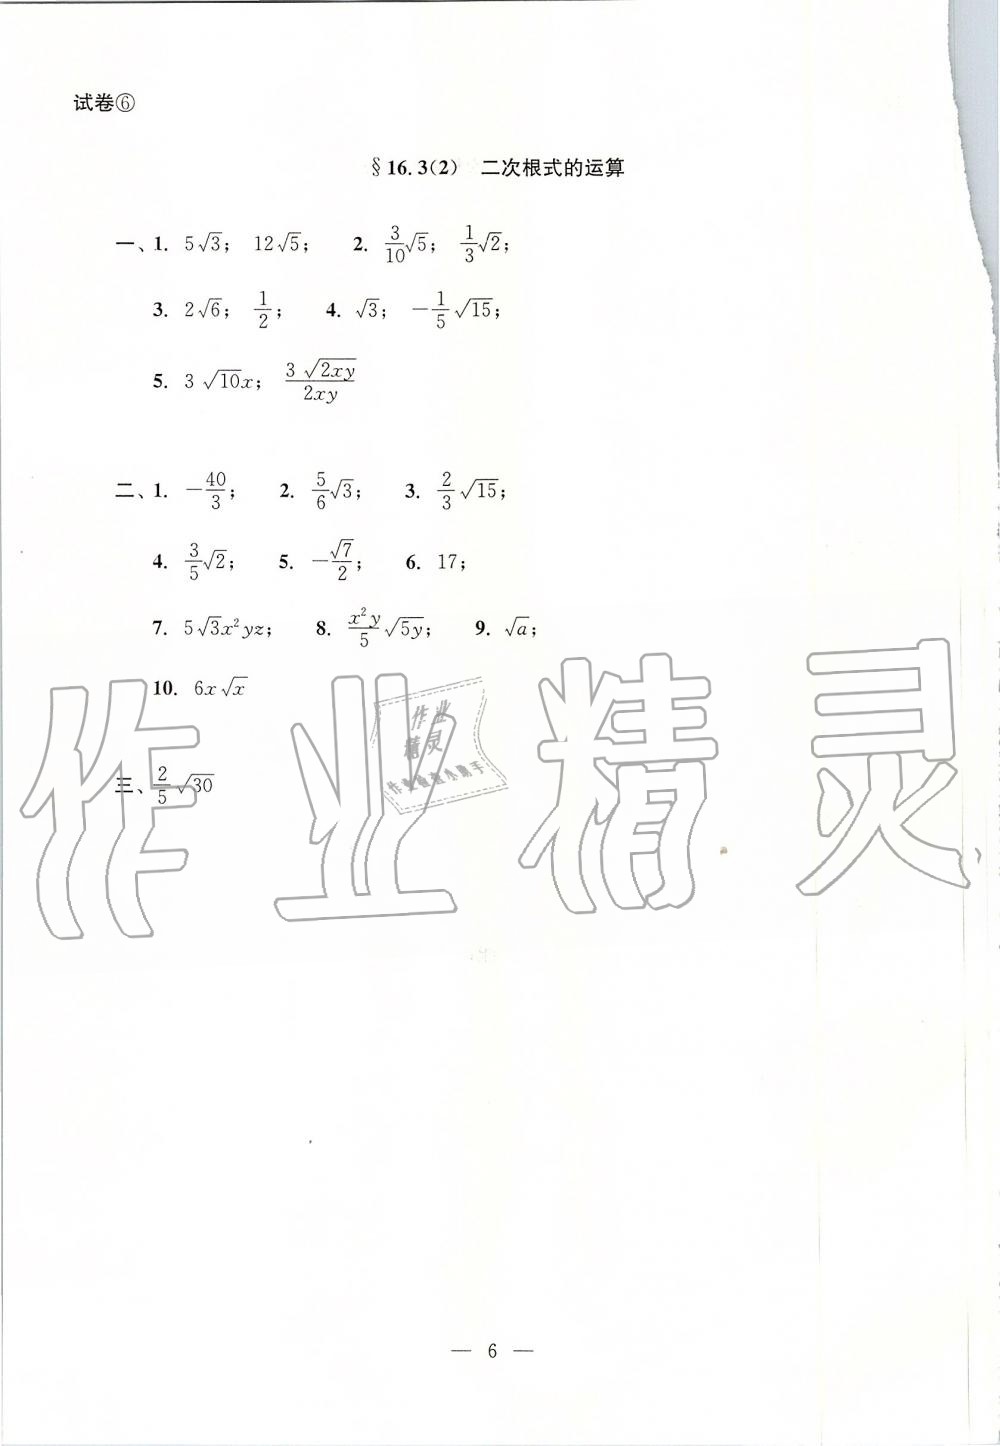 试卷⑥
§16.3(2) 二次根式的运算
一、1. 5√3; 12√5; 2. 3/10√5; 1/3√2;
3. 2√6; 1/2; 4. √3; −1/5√15;
5. 3√10x; 3√2xy/2xy
二、1. −40/3; 2. 5/6√3; 3. 2/3√15;
4. 3/5√2; 5. −√7/2; 6. 17;
7. 5√3x²yz; 8. x²y/5√5y; 9. √a;
10. 6x√x
作业精灵
作业
精灵
三、2/5√30
— 6 —